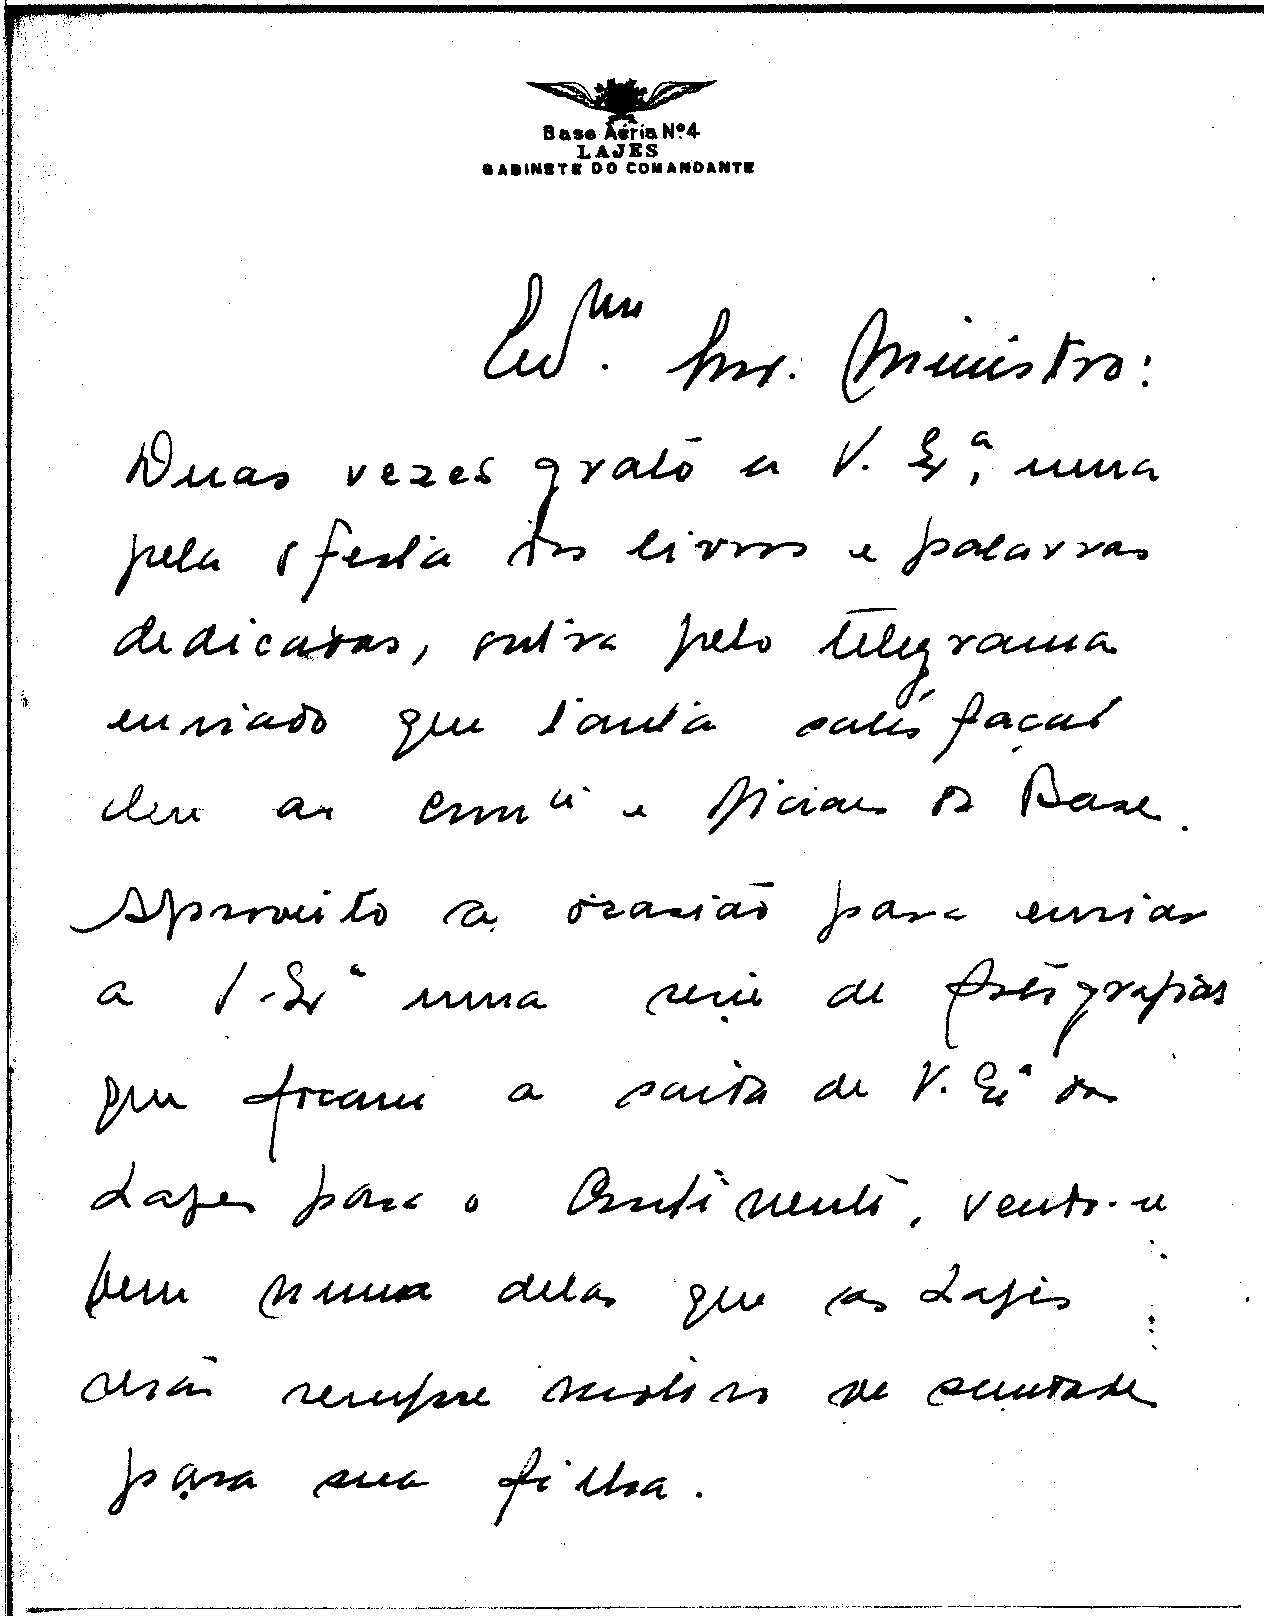 Base Aéria Nº4
LAJES
GABINETE DO COMANDANTE
Exmo. Snr. Ministro:
Duas vezes grato a V. Exª, uma
pela oferta dos livros e palavras
dedicadas, outra pelo telegrama
enviado que tanta satisfação
deu ao e oficiais da Base.
Aproveito a ocasião para enviar
a V. Exª uma serie de fotografias
que focam a saída de V. Exª das
Lajes para o Continente, vendo-se
bem numa delas que as Lajes
serão sempre motivo de saudade
para sua filha.